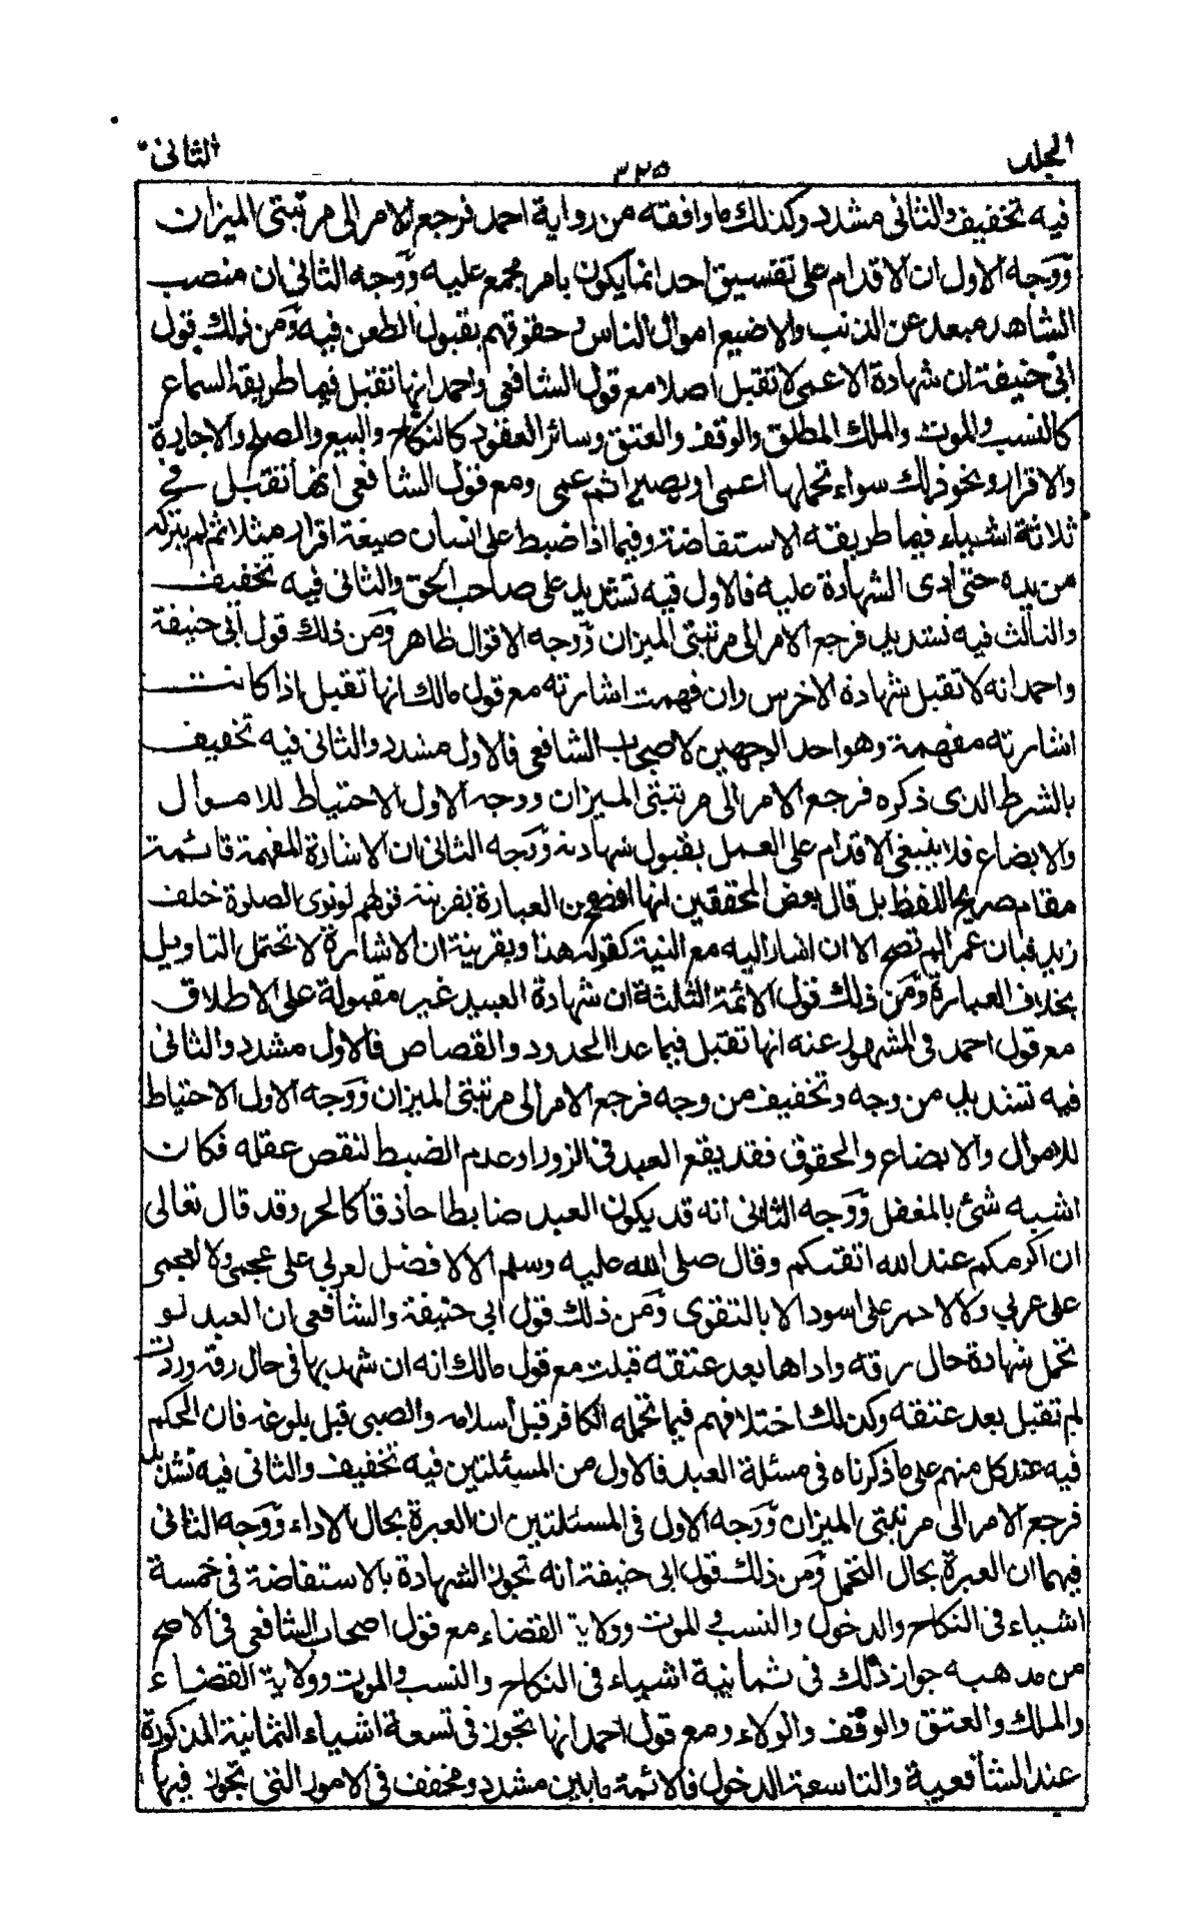 الجلد
٣٢٥
الثانى
فيه تخفيف والثانى مشدد وكذلك ما وافقه من رواية احمد فرجع الامر الى مرتبتى الميزان
ووجه الاول ان الاقدام على تفسيق احد انما يكون بامر مجمع عليه ووجه الثانى ان منصب
الشاهد مبعد عن الذنب والاضيع اموال الناس و حقوقهم بقبول الطعن فيه ومن ذلك قول
ابى حنيفة ان شهادة الاعمى لا تقبل اصلا مع قول الشافعى واحمد انها تقبل فيما طريقه السماع
كالنسب والموت والملك المطلق والوقف والعتق وسائر العقود كالنكاح والبيع والصلح والاجارة
والاقرار ونحو ذلك سواء تحملها اعمى او بصيرا ثم عمى ومع قول الشافعى انها تقبل فى
ثلاثة اشياء فيما طريقه الاستفاضة وفيما اذا ضبط على انسان صيغة اقرار مثلا ثم لم يتركه
من يده حتى ادى الشهادة عليه فالاول فيه تشديد على صاحب الحق والثانى فيه تخفيف
والثالث فيه تشديد فرجع الامر الى مرتبتى الميزان ووجه الاقوال ظاهر ومن ذلك قول ابى حنيفة
واحمد انه لا تقبل شهادة الاخرس وان فهمت اشارته مع قول مالك انها تقبل اذا كانت
اشارته مفهمة وهو احد الوجهين لاصحاب الشافعى فالاول مشدد والثانى فيه تخفيف
بالشرط الذى ذكره فرجع الامر الى مرتبتى الميزان ووجه الاول الاحتياط للاموال
والابضاع فلا ينبغى الاقدام على العمل بقبول شهادته ووجه الثانى ان الاشارة المفهمة قائمة
مقام صريح اللفظ بل قال بعض المحققين انها افصح من العبارة بقرينة قولهم لو نوى الصلوة خلف
زيد فبان عمرا لم تصح الا ان اشار اليه مع النية كقوله هذا وبقرينة ان الاشارة لا تحتمل التاويل
بخلاف العبارة ومن ذلك قول الائمة الثلثة ان شهادة العبيد غير مقبولة على الاطلاق
مع قول احمد فى المشهور عنه انها تقبل فيما عدا الحدود والقصاص فالاول مشدد والثانى
فيه تشديد من وجه وتخفيف من وجه فرجع الامر الى مرتبتى الميزان ووجه الاول الاحتياط
للاموال والابضاع والحقوق فقد يقع العبد فى الزور او عدم الضبط لنقص عقله فكان
اشبه شئ بالمغفل ووجه الثانى انه قد يكون العبد ضابطا حاذقا كالحر وقد قال تعالى
ان اكرمكم عند الله اتقىكم وقال صلى الله عليه وسلم الا لا فضل لعربي على عجمى ولا لعجمى
على عربي ولا لاحمر على اسود الا بالتقوى ومن ذلك قول ابى حنيفة والشافعى ان العبد لو
تحمل شهادة حال رقه واداها بعد عتقه قبلت مع قول مالك انه ان شهد بها فى حال رقه وردت
لم تقبل بعد عتقه وكذلك اختلافهم فيما تحمله الكافر قبل اسلامه والصبى قبل بلوغه فان الحكم
فيه عند كل منهم على ما ذكرناه فى مسئلة العبد فالاول من المسئلتين فيه تخفيف والثانى فيه تشديد
فرجع الامر الى مرتبتى الميزان ووجه الاول فى المسئلتين ان العبرة بحال الاداء ووجه الثانى
فيهما ان العبرة بحال التحمل ومن ذلك قول ابى حنيفة انه تجوز الشهادة بالاستفاضة فى خمسة
اشياء فى النكاح والدخول والنسب والموت وولاية القضاء مع قول اصحاب الشافعى فى الاصح
من مذهبه جواز ذلك فى ثمانية اشياء فى النكاح والنسب والموت وولاية القضاء
والملك والعتق والوقف والولاء ومع قول احمد انها تجوز فى تسعة اشياء الثمانية المذكورة
عند الشافعية والتاسعة الدخول فالائمة ما بين مشدد ومخفف فى الامور التى تجوز فيها